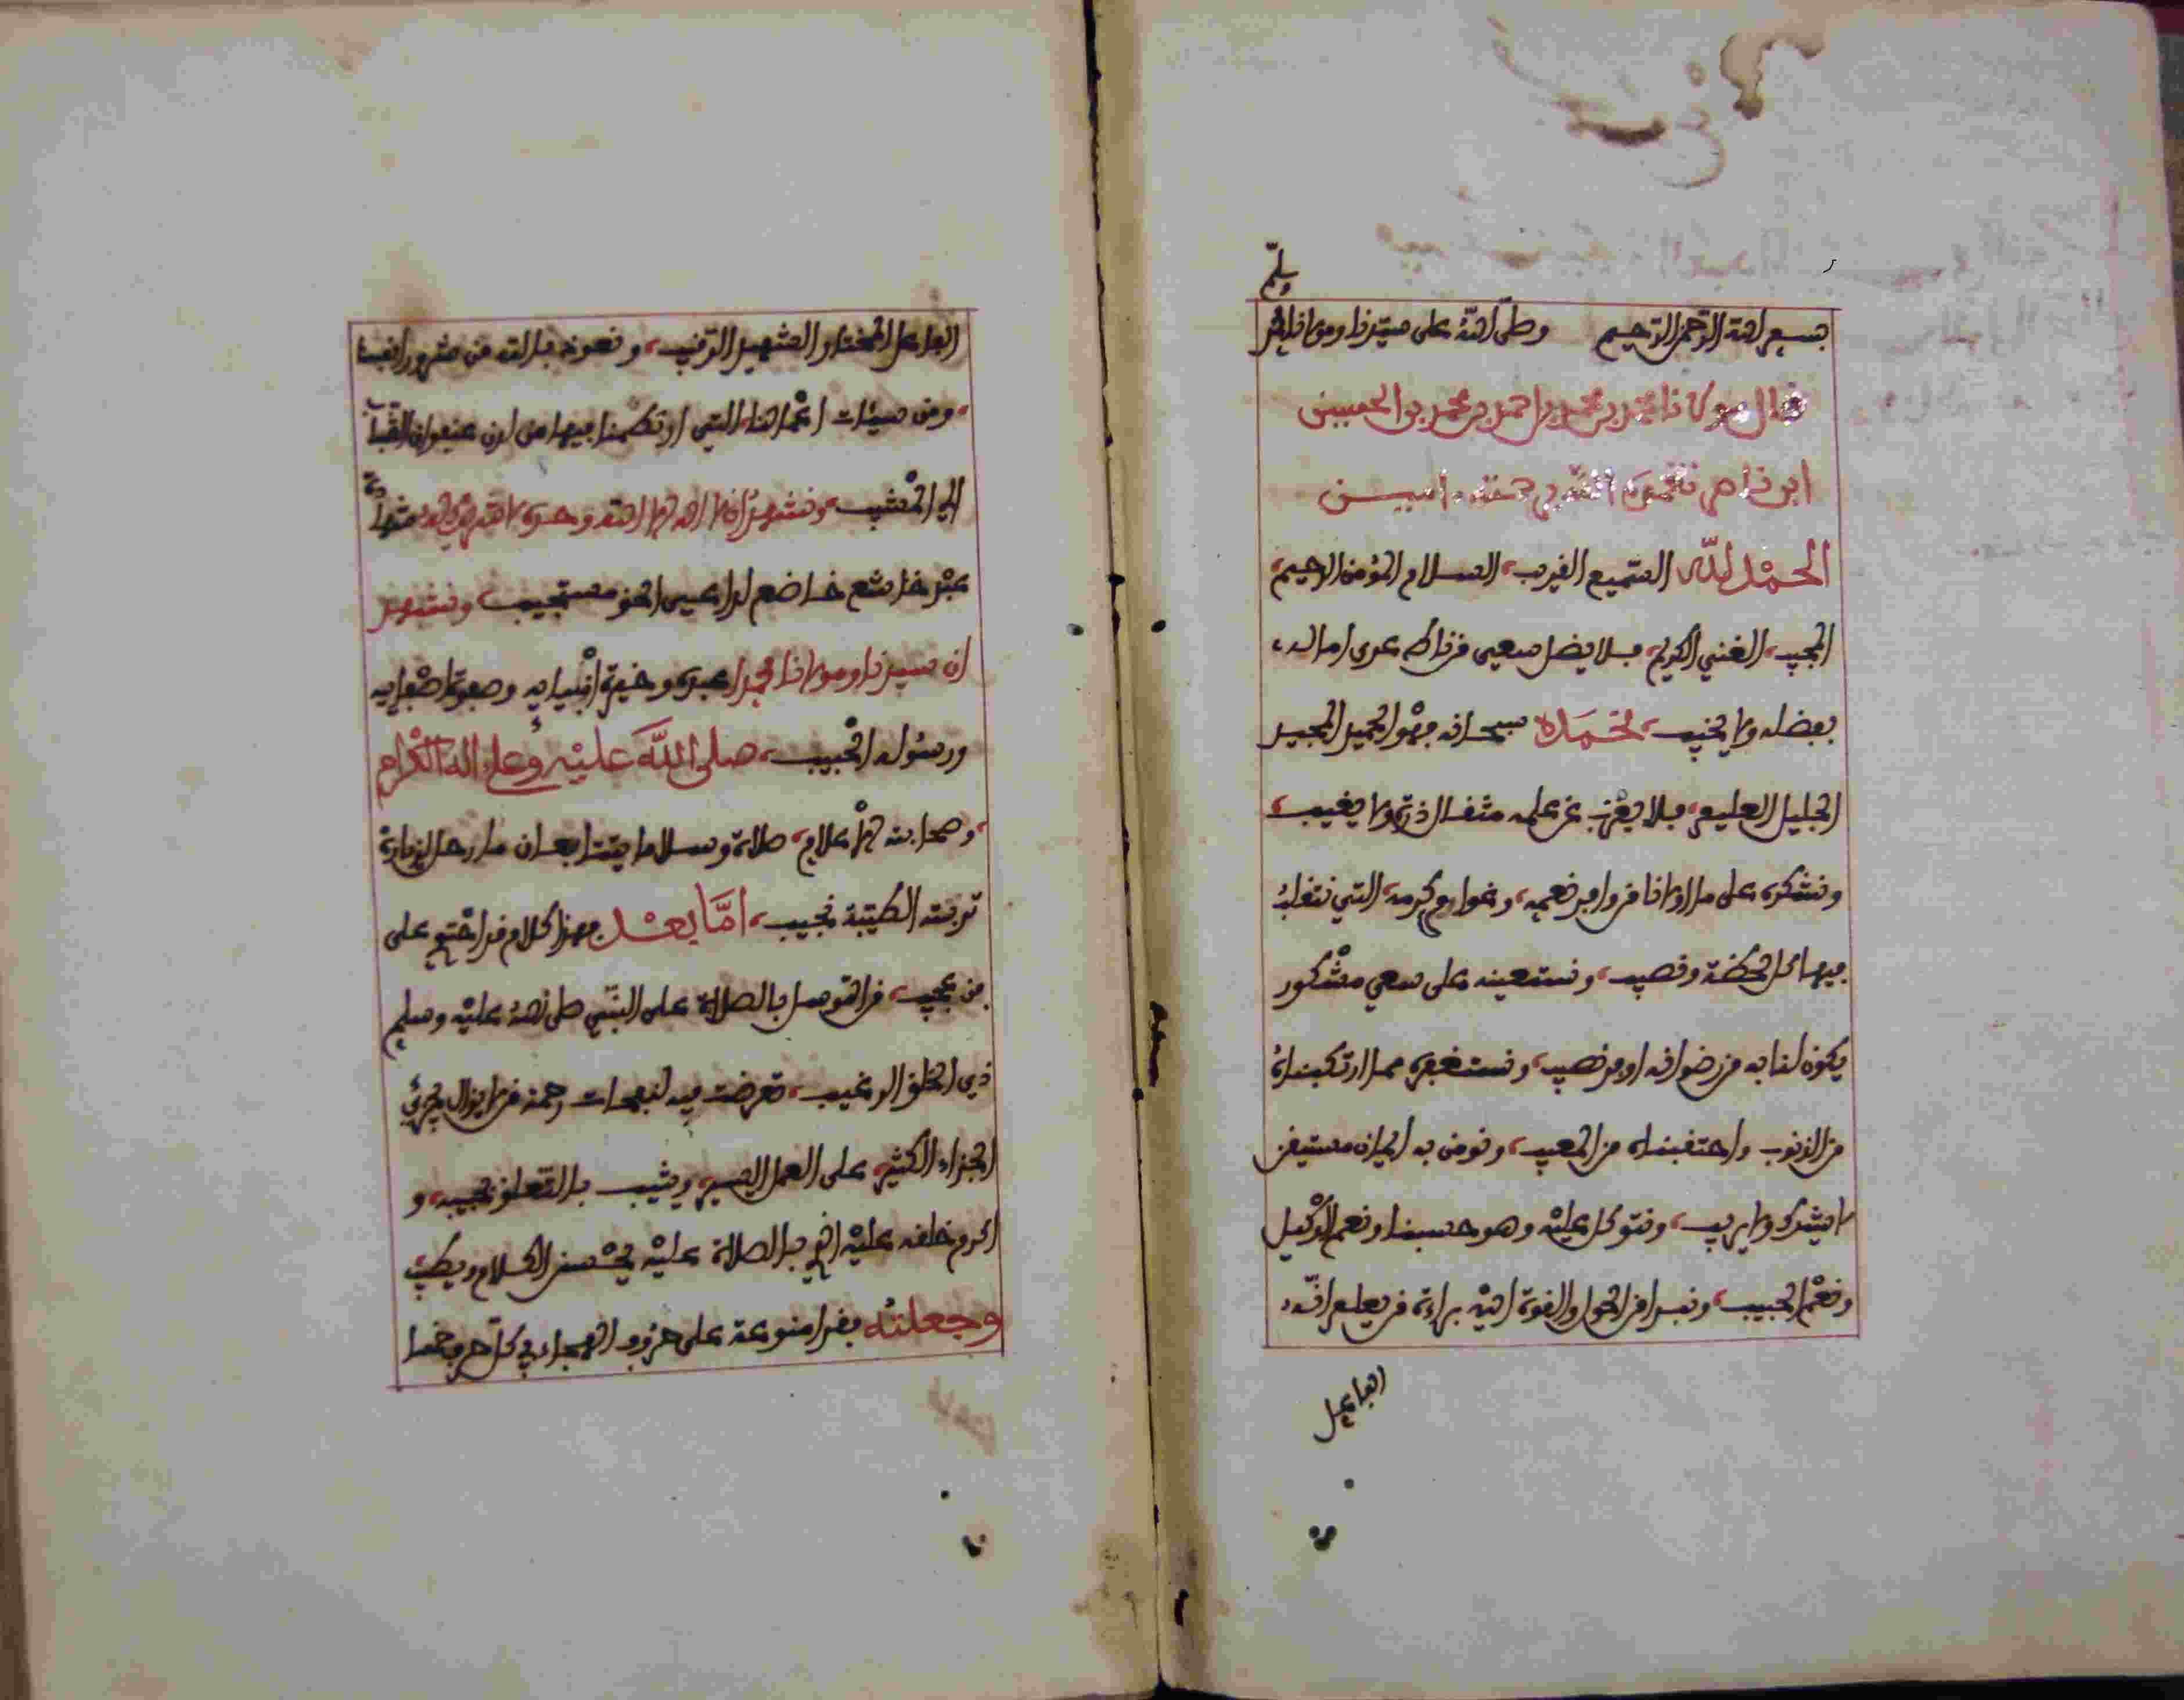 وسلم
بسم الله الرحمن الرحيم وصلى الله على سيدنا ومولانا محمد
قال مولانا محمد بن محمد بن احمد بن محمد بن الحسين
ابن ناصر تغمده الله برحمته ءامين
الحمد لله السميع القريب، السلام المؤمن الرحيم،
المجيب، الغني الكريم، فلا يضل سعي من ناله عدى اماله،
بفضله ولا يخيب، نحمده سبحانه فهو الحميد المجيد
الجليل العليم، فلا يعزب عن علمه مثقال ذرة ولا يغيب،
ونشكره على ما اولانا من وافر نعمه، وعوارف كرمه، التي نتقلب
فيها كل لحظة ونصيب، ونستعينه على سعي مشكور
يكون لنا به من رضوانه اوفر نصيب، ونستغفره مما ارتكبناه
من الذنوب واحتقبناه من المعيب، ونومن به ايمان مستيقن
لا يشرك ولا يريب، ونتوكل عليه وهو حسبنا ونعم الوكيل
ونعم الحسيب، ونبرا من الحول والقوة اليه براءة من يعلم انه،
الفاعل
الفاعل المختار الشهيد الرقيب، ونعوذ بالله من شرور انفسنا
، ومن سيئات اعمالنا، التي ارتكمنا فيها من لدن عنفوان الشباب
الى المشيب، ونشهد ان لا اله الا الله وحده لا شريك له شهادة
عبد خاشع خاضع لداعي الحق مستجيب، ونشهد
ان سيدنا ومولانا محمدا عبده وخيرة انبيايه وصفوة اصفيايه
ورسوله الحبيب، صلى الله عليه وعلى اله الكرام
، وصحابته الاعلام، صلاة وسلاما يتتابعان ما رحل لزيارة
تربته الطيبة نجيب، اما بعد فهذا كلام قد احتوى على
فن عجيب، من التوسل بالصلاة على النبي صلى الله عليه وسلم
ذي الخلق الرغيب، تعرضت فيه لنفحات رحمة من لا يزال يجزي
الجزاء الكثير، على العمل اليسير، ويثيب بالتعلق بحبيبه، و
اكرم خلقه عليه الذي بالصلاة عليه يحسن الكلام ويطيب
وجعلته فقرا منوعة على حروف الهجاء في كل حرف خمسا